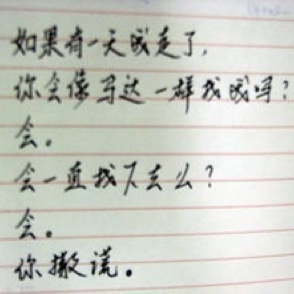 如果有一天我走了，
你会像马达一样找我吗？
会。
会一直找下去么？
会。
你撒谎。